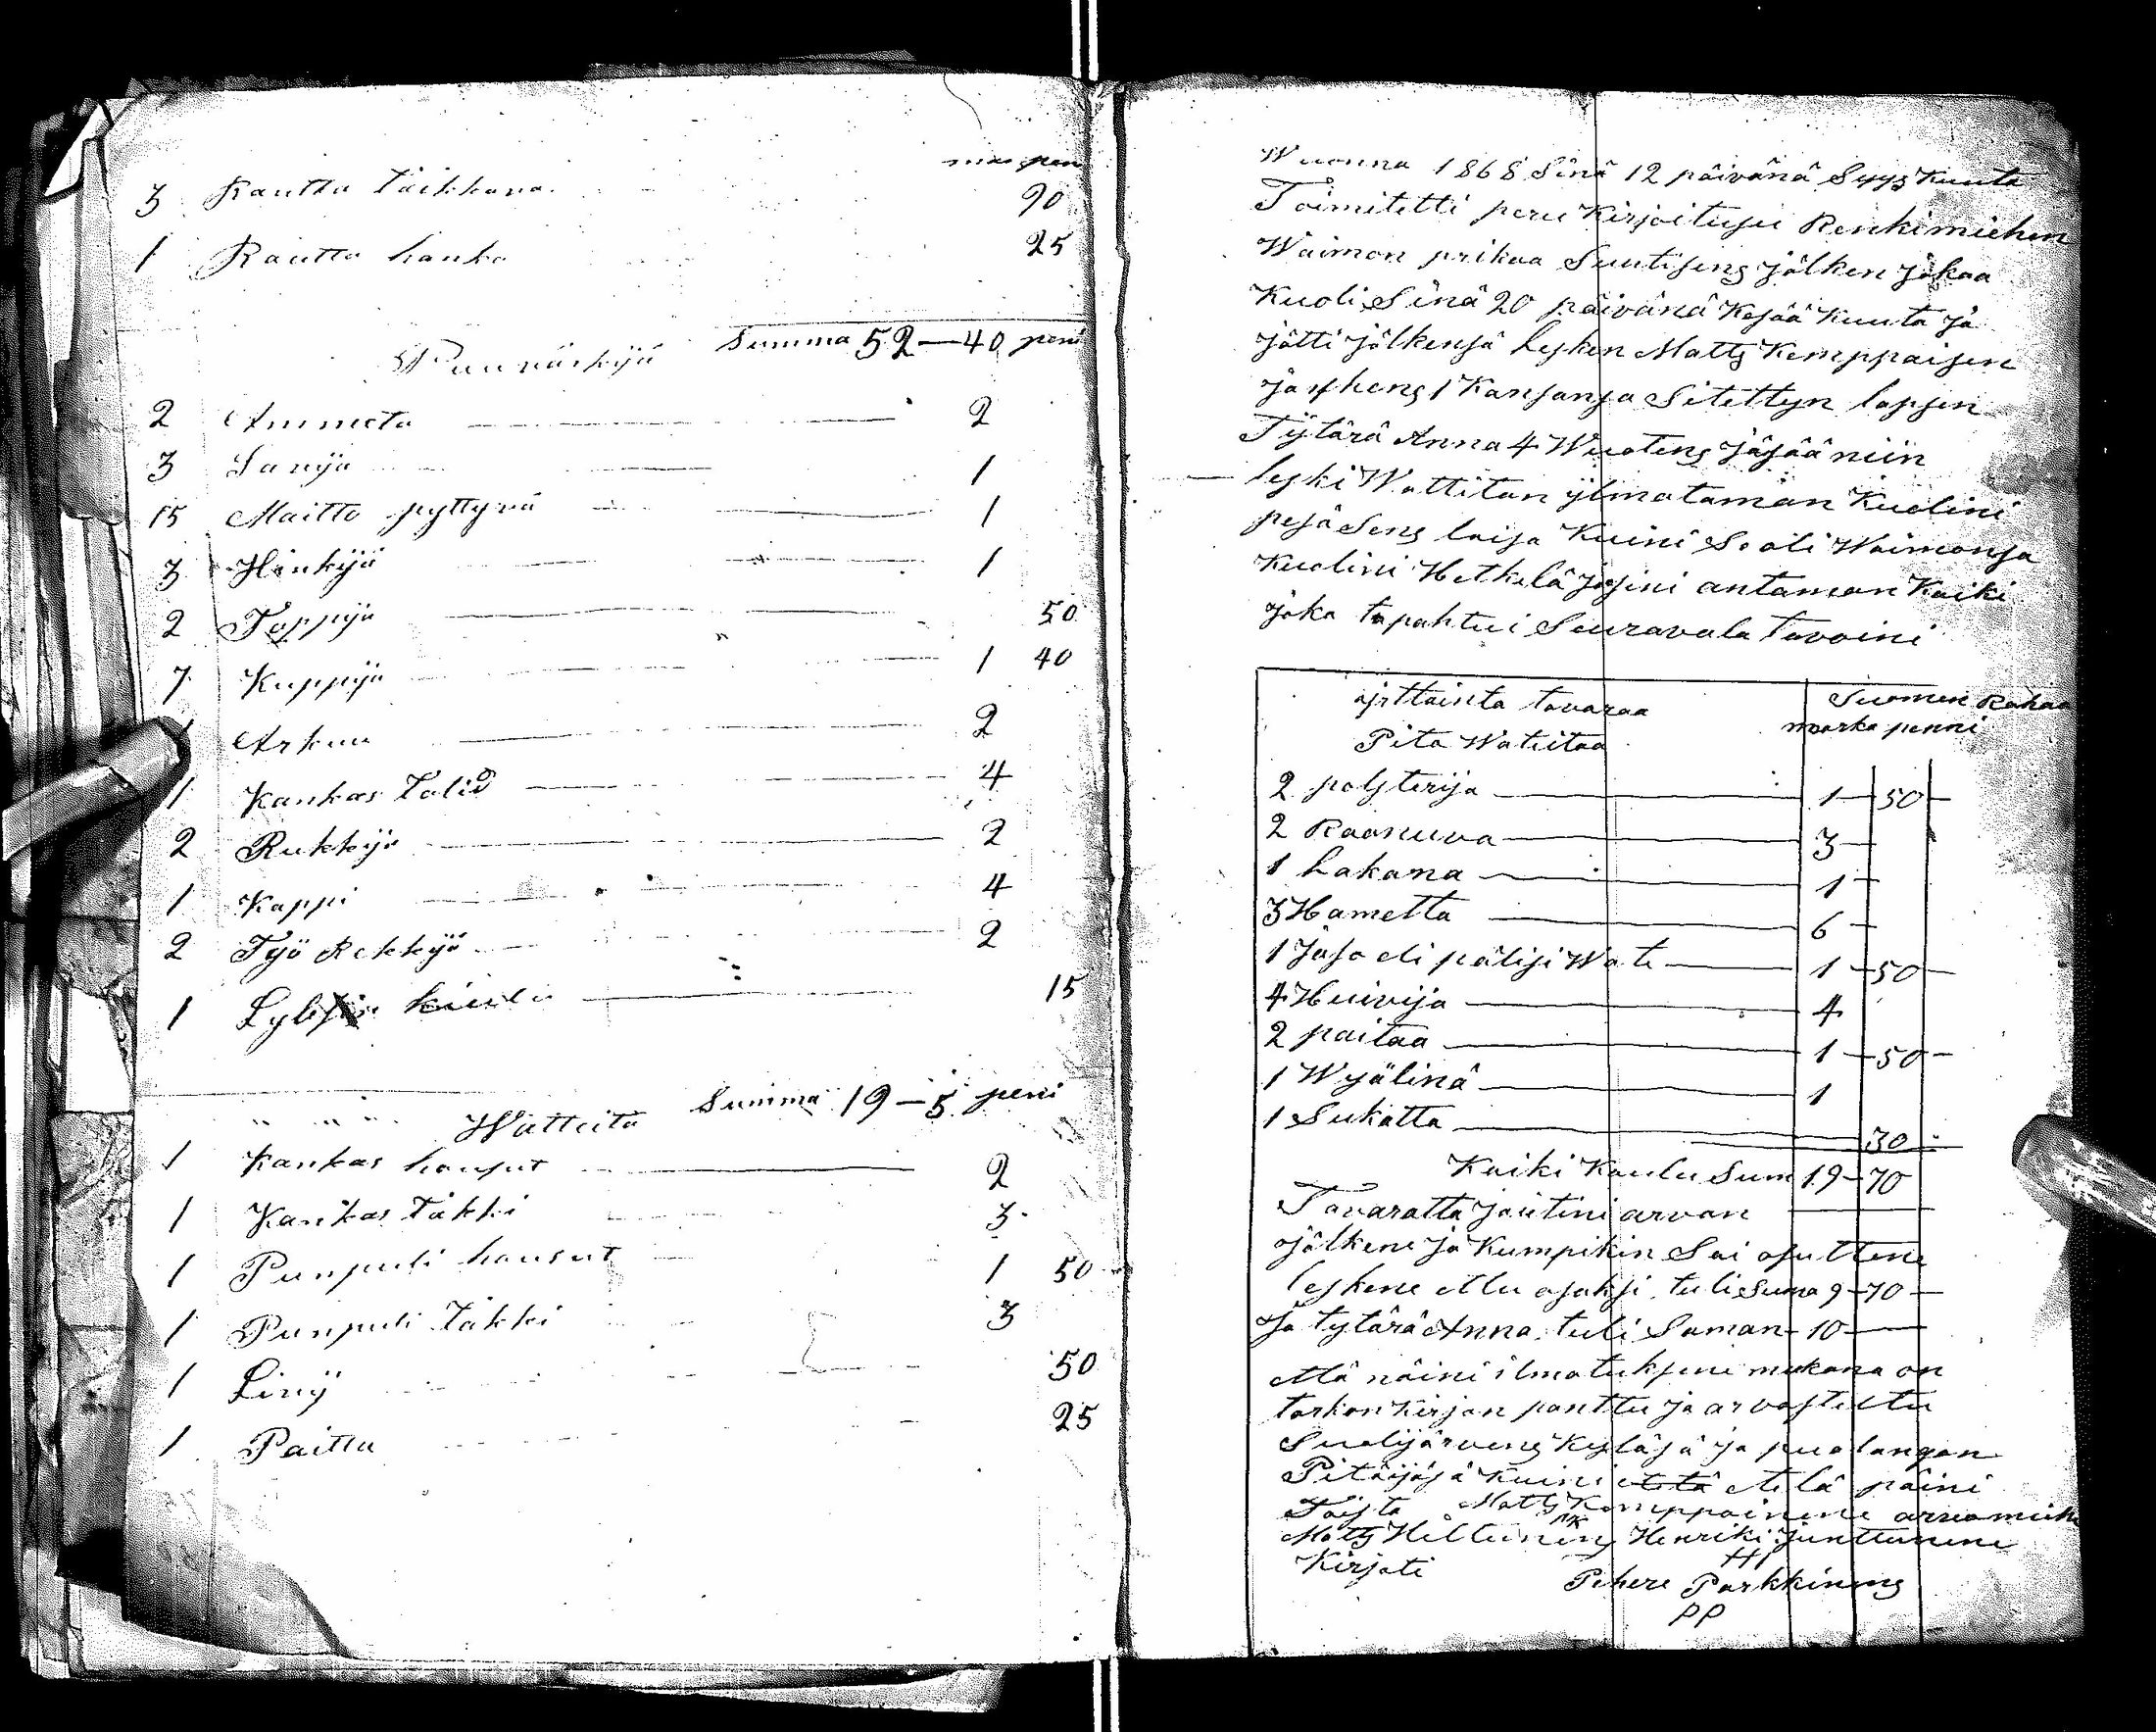 mar pen
3 Rautta täikkona 90
1 Rautta hanko 25
Summa 52—40 peni
Puunäskyä
2 Ammeta 2
3 Sanija 1
15 Maitto pyttyvä 1
3 Hinkijä 1
2 Toppija 50
7 Kuppija 1 40
Arkuu 2
1 Kankas Tolid 4
2 Rukkija 2
1 Kappi 4
2 Työ Rekkijä 2
1 kiulu 15
Summa 19—5 peni
Watteita
1 Kankas housut 2
1 Kankas täkki 3
1 Punpuli housut 1 50
1 Punpuli täkki 3
1 Livij 50
1 Paitta 25
Wuonna 1868 Sinä 12 päivänä Syys Kuuta
Toimitetti peru Kirjoitusu Renkimiehen
Waimon prikaa Suutisens jälken jokaa
Kuoli Sinä 20 päivänä Kesää Kuuta ja
jätti jälkensä lesken Matts Kemppaisen
ja hens 1 Kansansa Sitettyn lapsen
Tytärä Anna 4 Wuotens jäsää niin
leski Wattitan ylmotaman Kuolini
pesä Sens laisa Kuini Se oli Waimonsa
Kuolini Hetkelä josini antaman Kaiki
joka tapahtui Seuravala tavoini
yrttainta tavaraa Suomen Rahaa
Pita Wateitaa marka penni
2 polsterija 1—50
2 Raanuva 3
1 Lakana 1
3 Hametta 6
1 Jäso eli pälisi Wate 1—50
4 Huivija 4
2 paitaa 1—50
1 Wyälinä 1
1 Sukatta 30
Kaiki Kaulu Sum 19—70
Tavaratta jautini arvan
jälkene ja Kumpikin Sai osuttene
leskene Alu osaksi tuli Suma 9—70
Ja tytärä Anna tuli Saman 10
Alä näini ilmotuksine mukana on
tarkon Kirjan panttu ja arvostettu
Suolijärvens Kyläsä ja puolangan
Pitäjäsä Kuini etetä Alä päini
Toista Matts Kemppainene arviomiehe
MK
Matts Heltunens Henriki Junttunene
HJ
Kirjoti Petere Parkkinens
PP